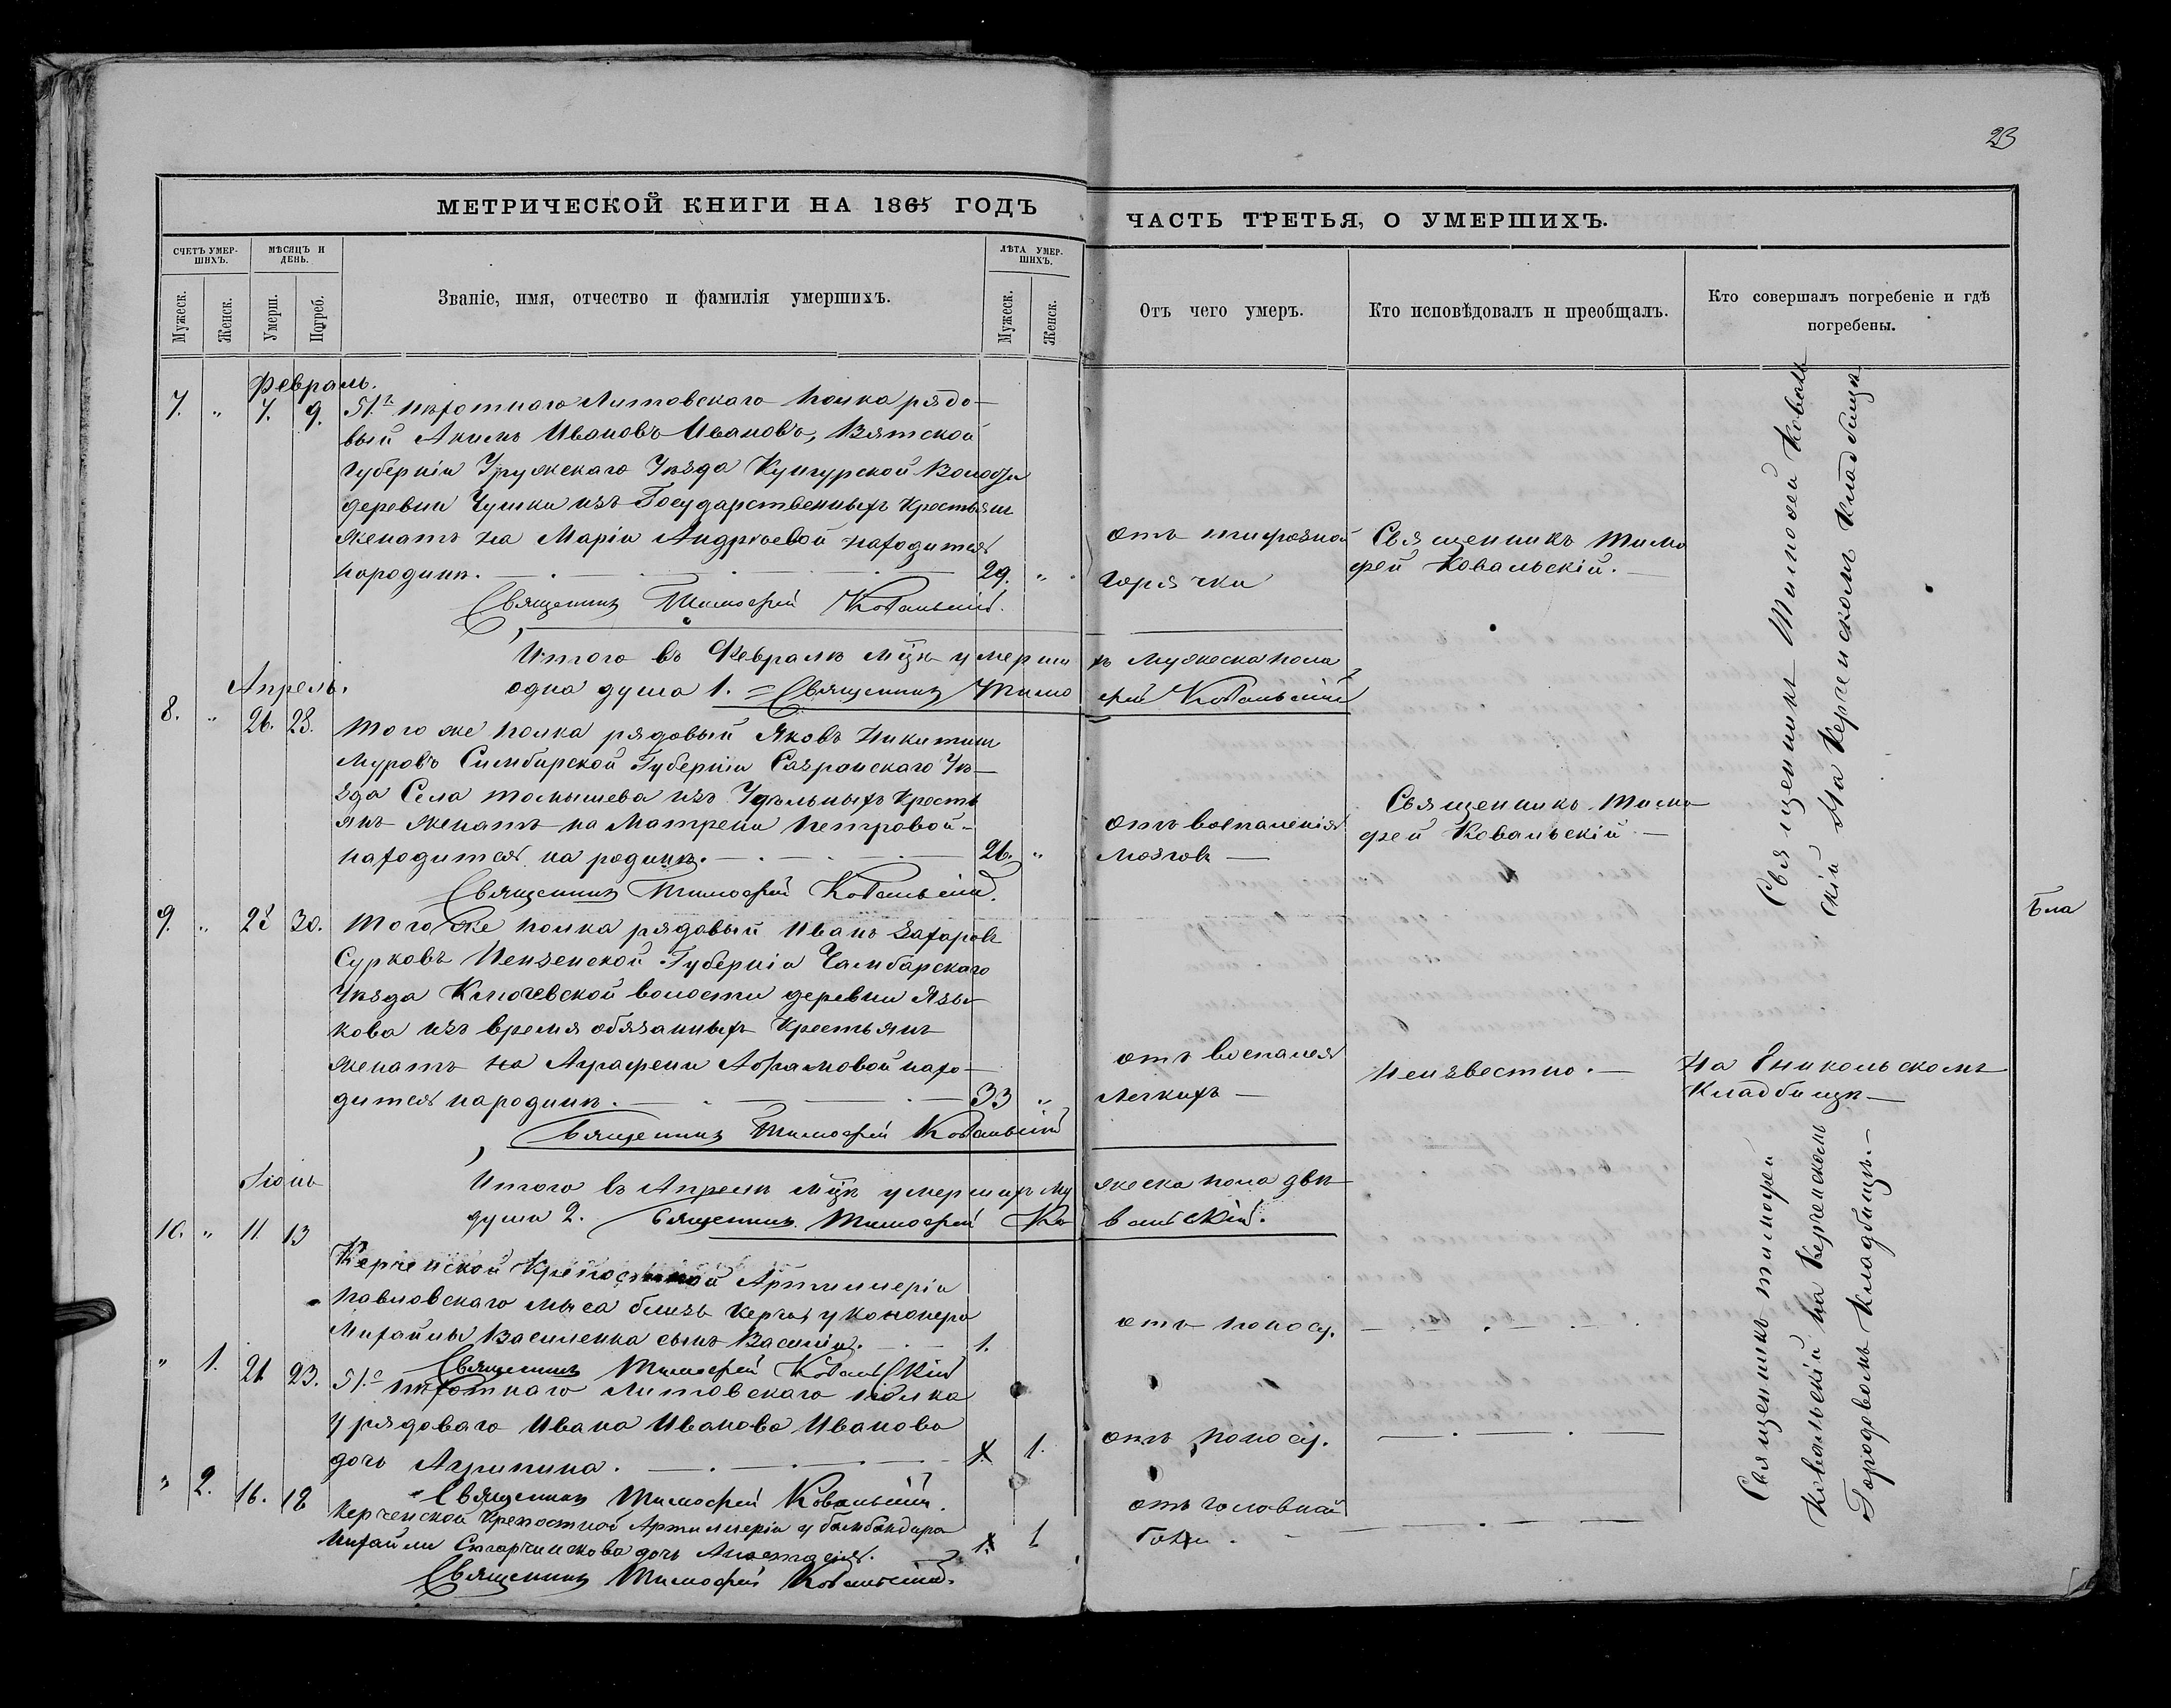 23
МЕТРИЧЕСКОЙ КНИГИ НА 1865 ГОДЪ
ЧАСТЬ ТРЕТЬЯ, О УМЕРШИХЪ.
СЧЕТЪ УМЕР-
ШИХЪ.
МѢСЯЦЪ И
ДЕНЬ.
Званіе, имя, отчество и фамилія умершихъ.
ЛѢТА УМЕР-
ШИХЪ.
Мужеск.
Женск.
Умерш.
Погреб.
Мужеск.
Женск.
Отъ чего умеръ.
Кто исповѣдовалъ и преобщалъ.
Кто совершалъ погребеніе и гдѣ
погребены.
Февраль.
7. " 7. 9. 51.го пѣхотнаго Литовскаго полка рядо-
вый Акимъ Ивановъ Ивановъ, Вятской
Губерніи Уѣзда Кунгурской Волости
деревни Чушки изъ Государственныхъ Крестьянъ
женатъ на Маріи Андреевой находится
народинѣ. 29. "
отъ тифозной
горячки
Священникъ Тимо
фей Ковальскій.
Священникъ Тимофей Ковальскій.
Итого въ Февралѣ мцѣ умерши
хъ Мужеска пола
одна душа 1. = Священникъ Тимо
фей Ковальскій
Апрель.
8. " 26. 28. Того же полка рядовый Яковъ Никитинъ
Муровъ Симбирской Губерніи Сызранскаго Уѣ-
зда Села томышева изъ Удѣльныхъ Кресть
янъ женатъ на Матрени Петровой-
находится на родинѣ. 26. "
отъ воспаленія
мозговъ
Священникъ Тимо
фей Ковальскій
Священникъ Тимофей Ковальскій.
Священникъ Тимофей Коваль
скій На Керченскомъ Кладбищѣ
9. " 28 30. Того же полка рядовый Иванъ Захаровъ
Сурковъ Пензенской Губерніи Чамбарскаго
Уѣзда Ключевской волости деревни Язы-
кова изъ время обязанныхъ Крестьянъ
женатъ на Аграфени Абрамовой нахо-
дится народинѣ. 33 "
отъ воспалея
легкихъ
Неизвестно.
На Еникольскомъ
Кладбищѣ
Священникъ Тимофей Ковальскій
Итого въ Апрелѣ мцѣ умершихъ Му
жеска пола двѣ
души 2. Священникъ Тимофей Ко
вальскій.
Іюнь
10. " 11 13
Керченской Крепостной Артиллеріи
Павловскаго мыса близъ Керчи у канонера
Михайлы Василенка сынъ Василій. 1.
отъ поносу.
Священникъ Тимофей Ковальскій
" 1. 21 23. 51.го пѣхотнаго Литовскаго полка
у рядоваго Ивана Иванова Иванова
дочь Агрипина. 1.
отъ поносу.
Священникъ Тимофей Ковальскій.
" 2. 16. 18
Керченской Крепостной Артиллеріи у бамбандира
Михайли дочь Анастасія. 1
отъ головной
боли.
Священникъ Тимофей Ковальскій.
Священникъ тимофей
Ковальскій на Керченскомъ
Городовомъ Кладбищѣ.